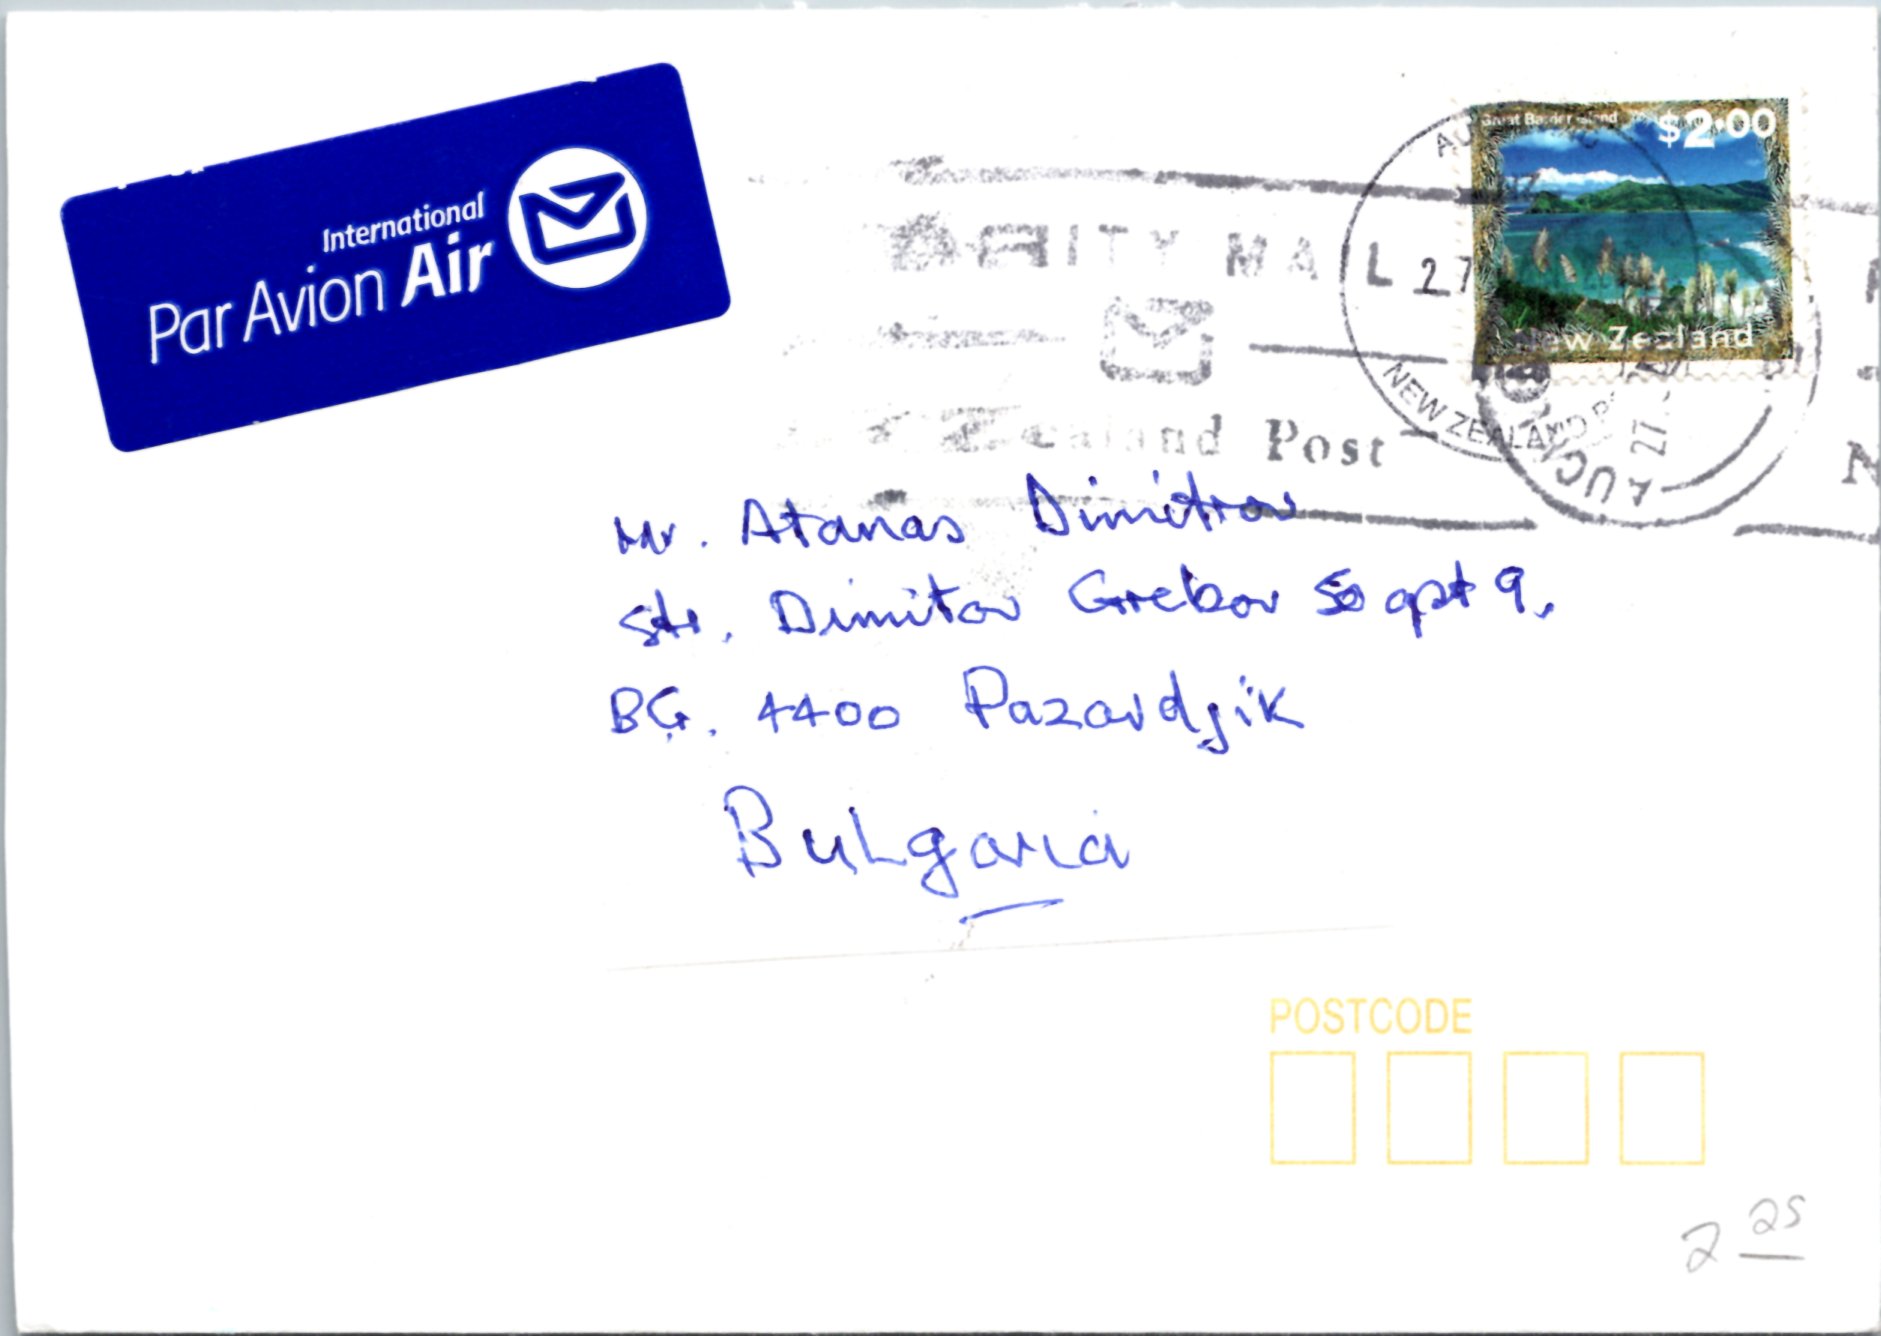 International
Par Avion Air
Great Barrier Island
$2.00
New Zealand
MAIL
27
NEW ZEALAND
Zealand Post
27
AUC
Mr. Atanas Dimitrov
str. Dimitov Grebov 50 apt 9.
BG. 4400 Pazardjik
Bulgaria
POSTCODE
2 25